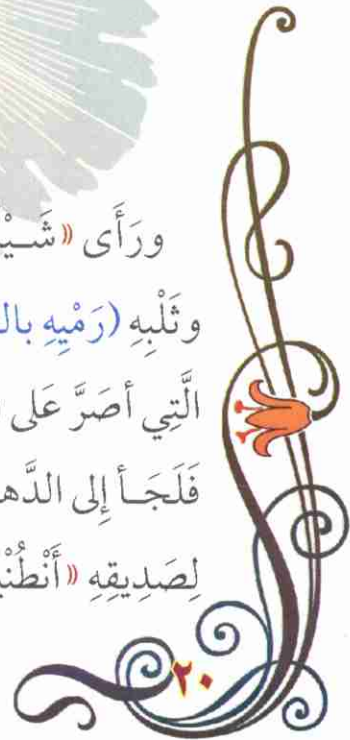 ورَأَى «شَيْ
وثَلْبِهِ (رَمْيِهِ بال
الَّتِي أصَرَّ عَلى
فَلَجَأ إلى الدَّه
لِصَدِيقِهِ «أَنْطُنْ
٢٠